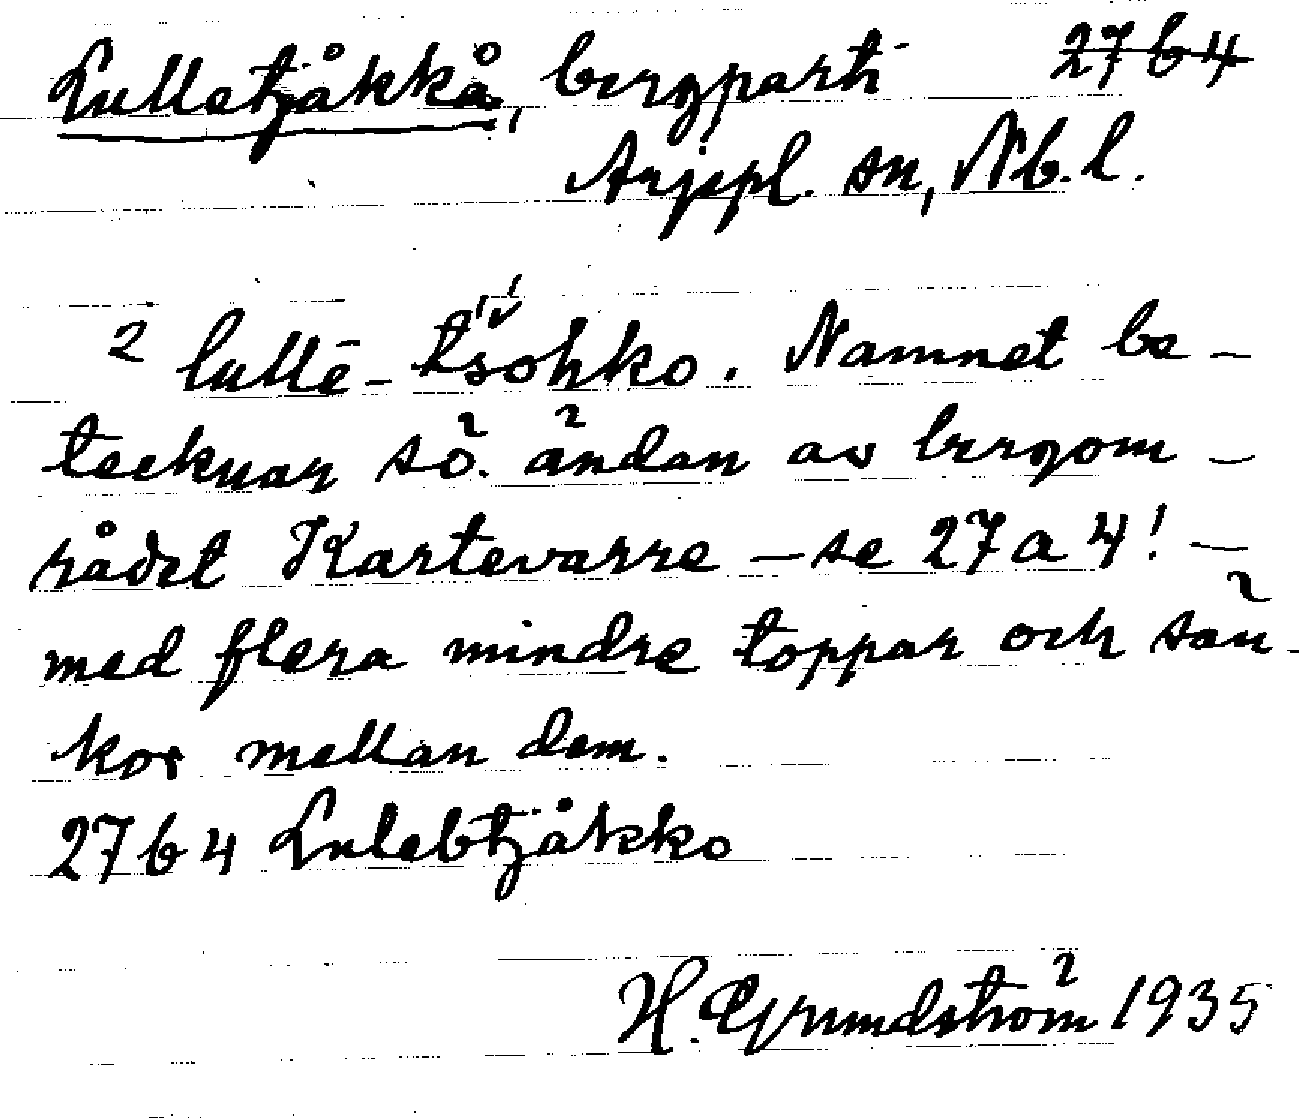 Lulletjåkkå, bergparti 27b4
Arjepl. sn, Nb.l.
2 lullē-tšohko. Namnet be-
tecknar sö. ändan av bergom-
rådet Kartevarre – se 27a4! –
med flera mindre toppar och sän-
kor mellan dem.
27b4 Lulebtjåkko
H. Grundström 1935